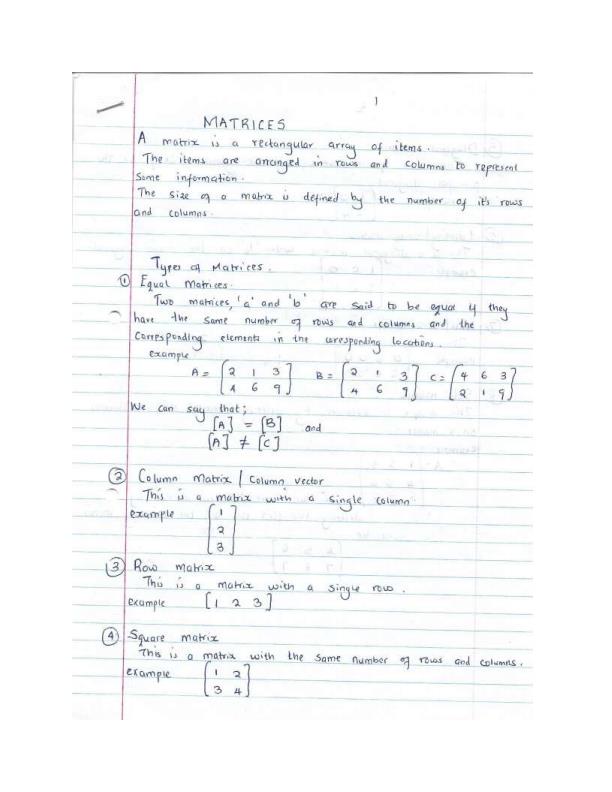 1
MATRICES
A matrix is a rectangular array of items.
The items are arranged in rows and columns to represent
some information.
The size of a matrix is defined by the number of it's rows
and columns.
Types of Matrices.
① Equal Matrices.
Two matrices, 'a' and 'b' are said to be equal if they
have the same number of rows and columns and the
corresponding elements in the corresponding locations.
example
A = [2 1 3   B = [2 1 3   C = [4 6 3
4 6 9]   4 6 9]   2 1 9]
We can say that;
[A] = [B] and
[A] ≠ [C]
② Column Matrix / Column vector
This is a matrix with a single column
example [1
2
3]
③ Row matrix
This is a matrix with a single row.
example [1 2 3]
④ Square matrix
This is a matrix with the same number of rows and columns.
example [1 2
3 4]